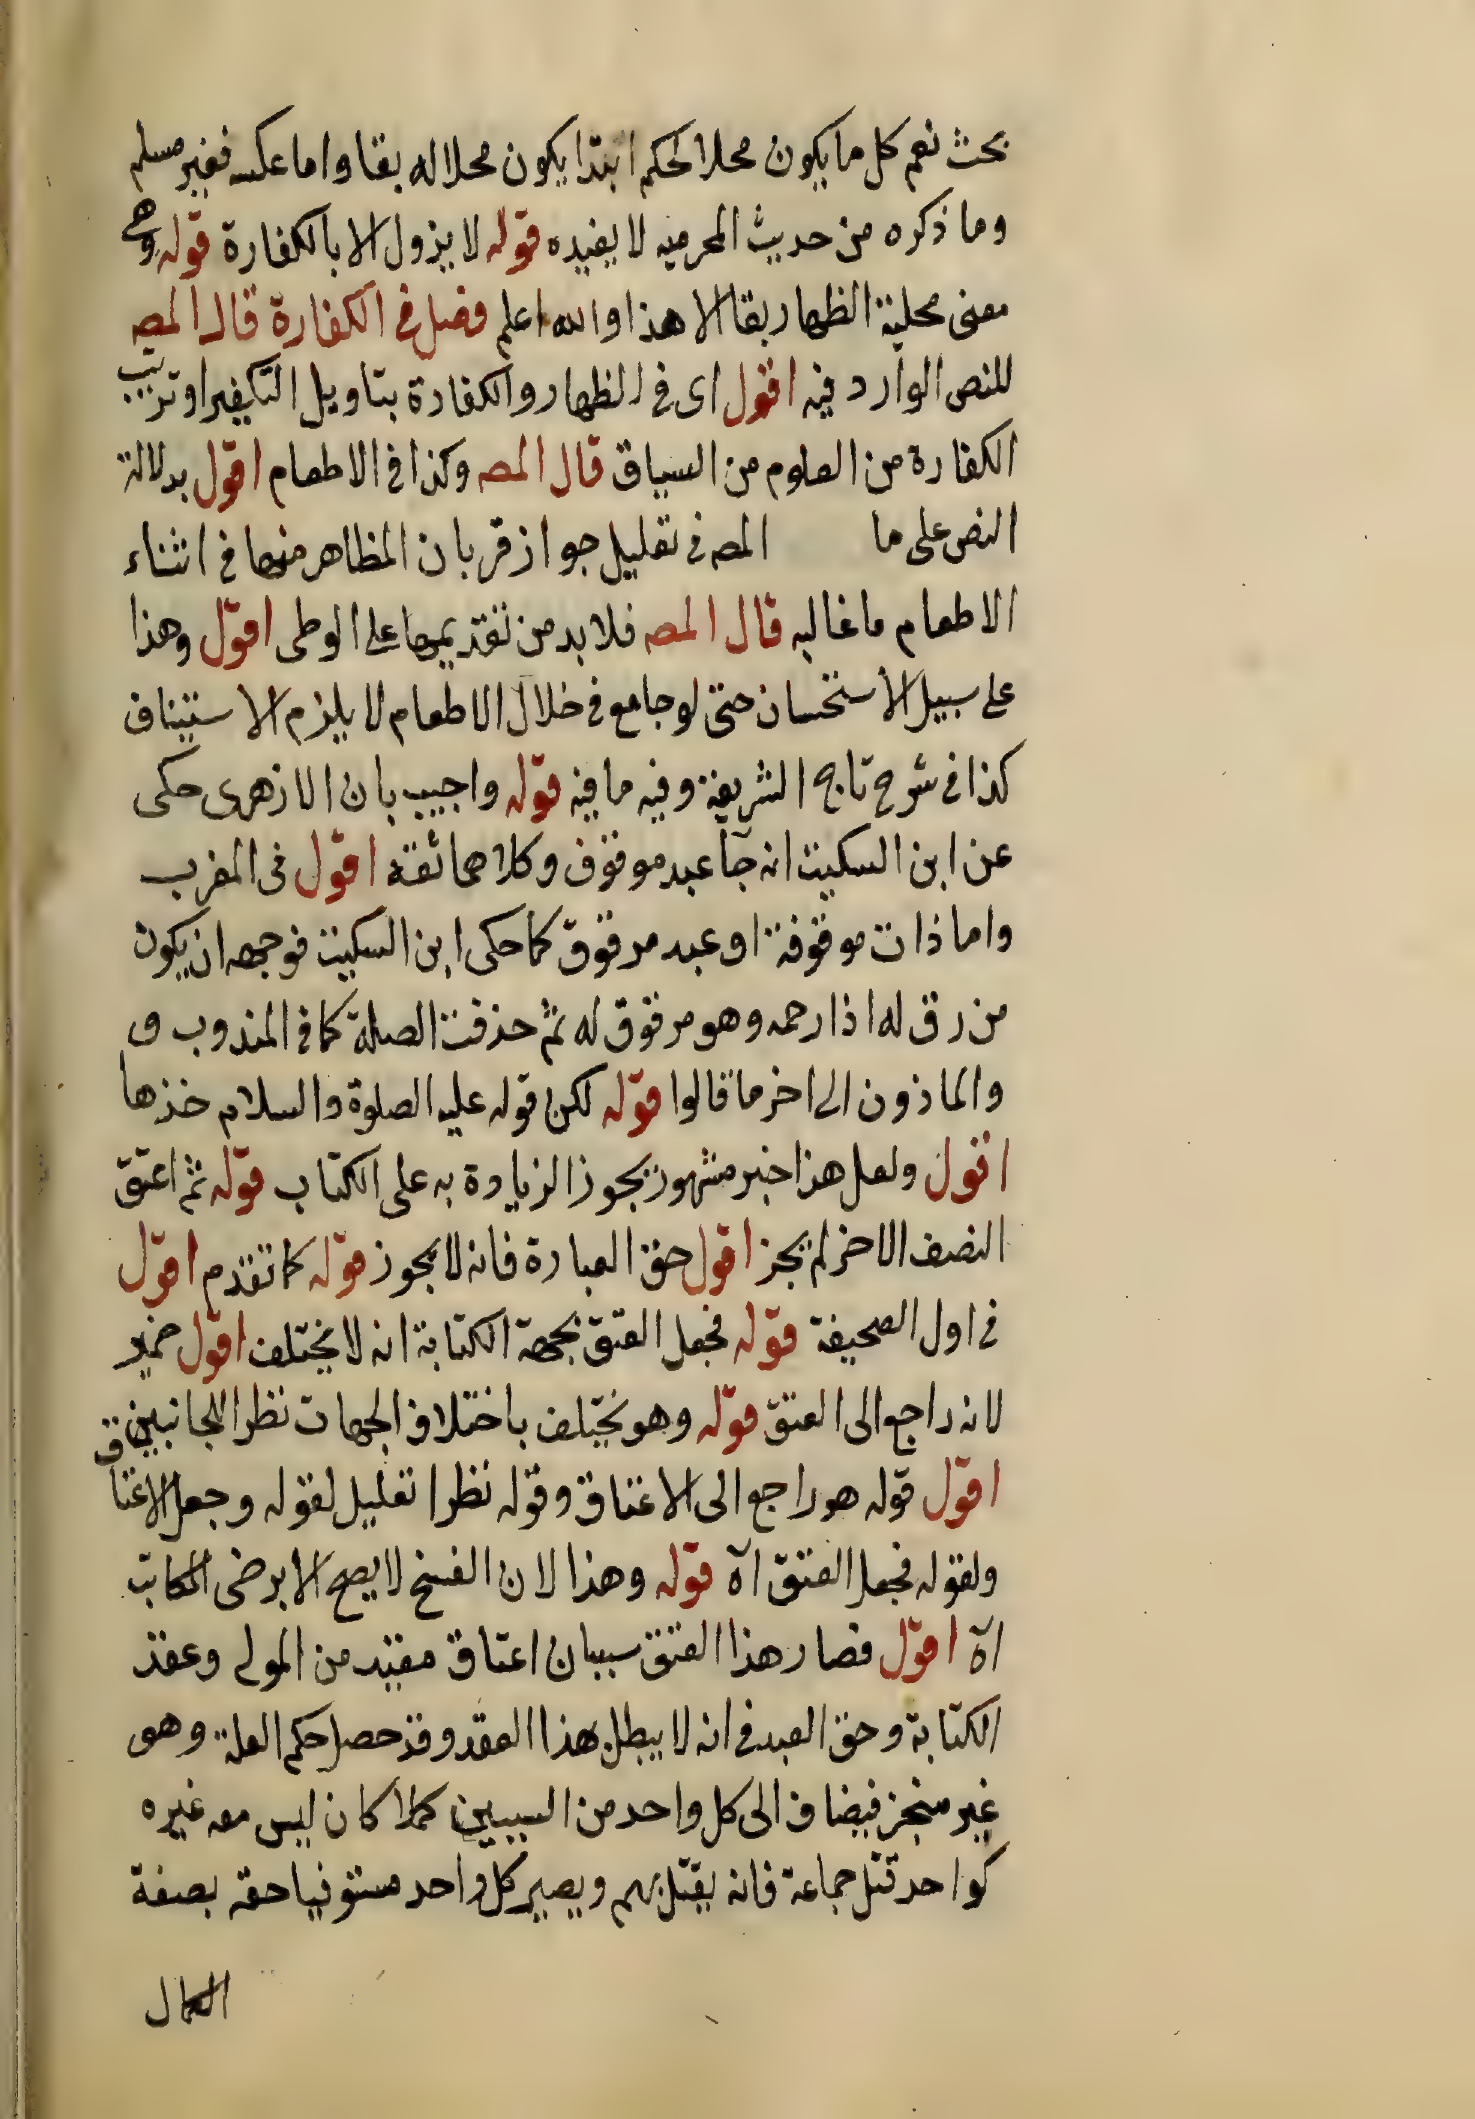 بحث نعم كل ما يكون محلا لحكم ابتدا يكون محلا له بقا واما عكسه فغير مسلم
وما ذكره من حديث المحرميه لا يفيده قوله لا يزول الا بالكفارة قوله وهى
معنى محلية الظهار بقا الا هذا والله اعلم فصل فى الكفارة قال المص
للنص الوارد فيه اقول اى فى الظهار والكفارة بتاويل التكفير او ترتيب
الكفارة من المعلوم من السياق قال المص وكذا فى الاطعام اقول بدلالة
النص على ما المص فى تعليل جواز قربان المظاهر منها فى اثناء
الاطعام ما غالبه قال المص فلا بد من تقديمها على الوطى اقول وهذا
على سبيل الاستحسان حتى لو جامع فى خلال الاطعام لا يلزم الاستيناف
كذا فى شرح تاج الشريعة وفيه ما فيه قوله واجيب بان الازهرى حكى
عن ابن السكيت انه جآ عبد موقوف وكلاهما ثقة اقول فى المغرب
واما ذات موقوفة او عبد مرقوق كما حكى ابن السكيت فوجهه ان يكون
من رق له اذا رحمه وهو مرقوق له ثم حذفت الصلة كما فى المندوب و
والماذون الى اخر ما قالوا قوله لكن قوله عليه الصلوة والسلام خذها
اقول ولعل هذا خبر مشهور يجوز الزيادة به على الكتاب قوله ثم اعتق
النصف الاخر لم يجز اقول حق العبارة فانه لا يجوز قوله كما تقدم اقول
فى اول الصحيفة قوله فجعل العتق بجهة الكتابة انه لا يختلف اقول ضمير
لانه راجع الى العتق قوله وهو يختلف باختلاف الجهات نظرا للجانبين
اقول قوله هو راجع الى الاعتاق وقوله نظرا تعليل لقوله وجعل الاعتاق
ولقوله فجعل العتق اه قوله وهذا لان الفسخ لا يصح الا برضى المكاتب
اه اقول فصار هذا العتق سببان اعتاق مقيد من المولى وعقد
الكتابة وحق العبد فى انه لا يبطل هذا العقد وقد حصل حكم العلة وهو
غير منجز فيضاف الى كل واحد من السببين كملا كان ليس معه غيره
كواحد قتل جماعة فانه يقتل بهم ويصير كل واحد مستوفيا حقه بصفة
الكمال